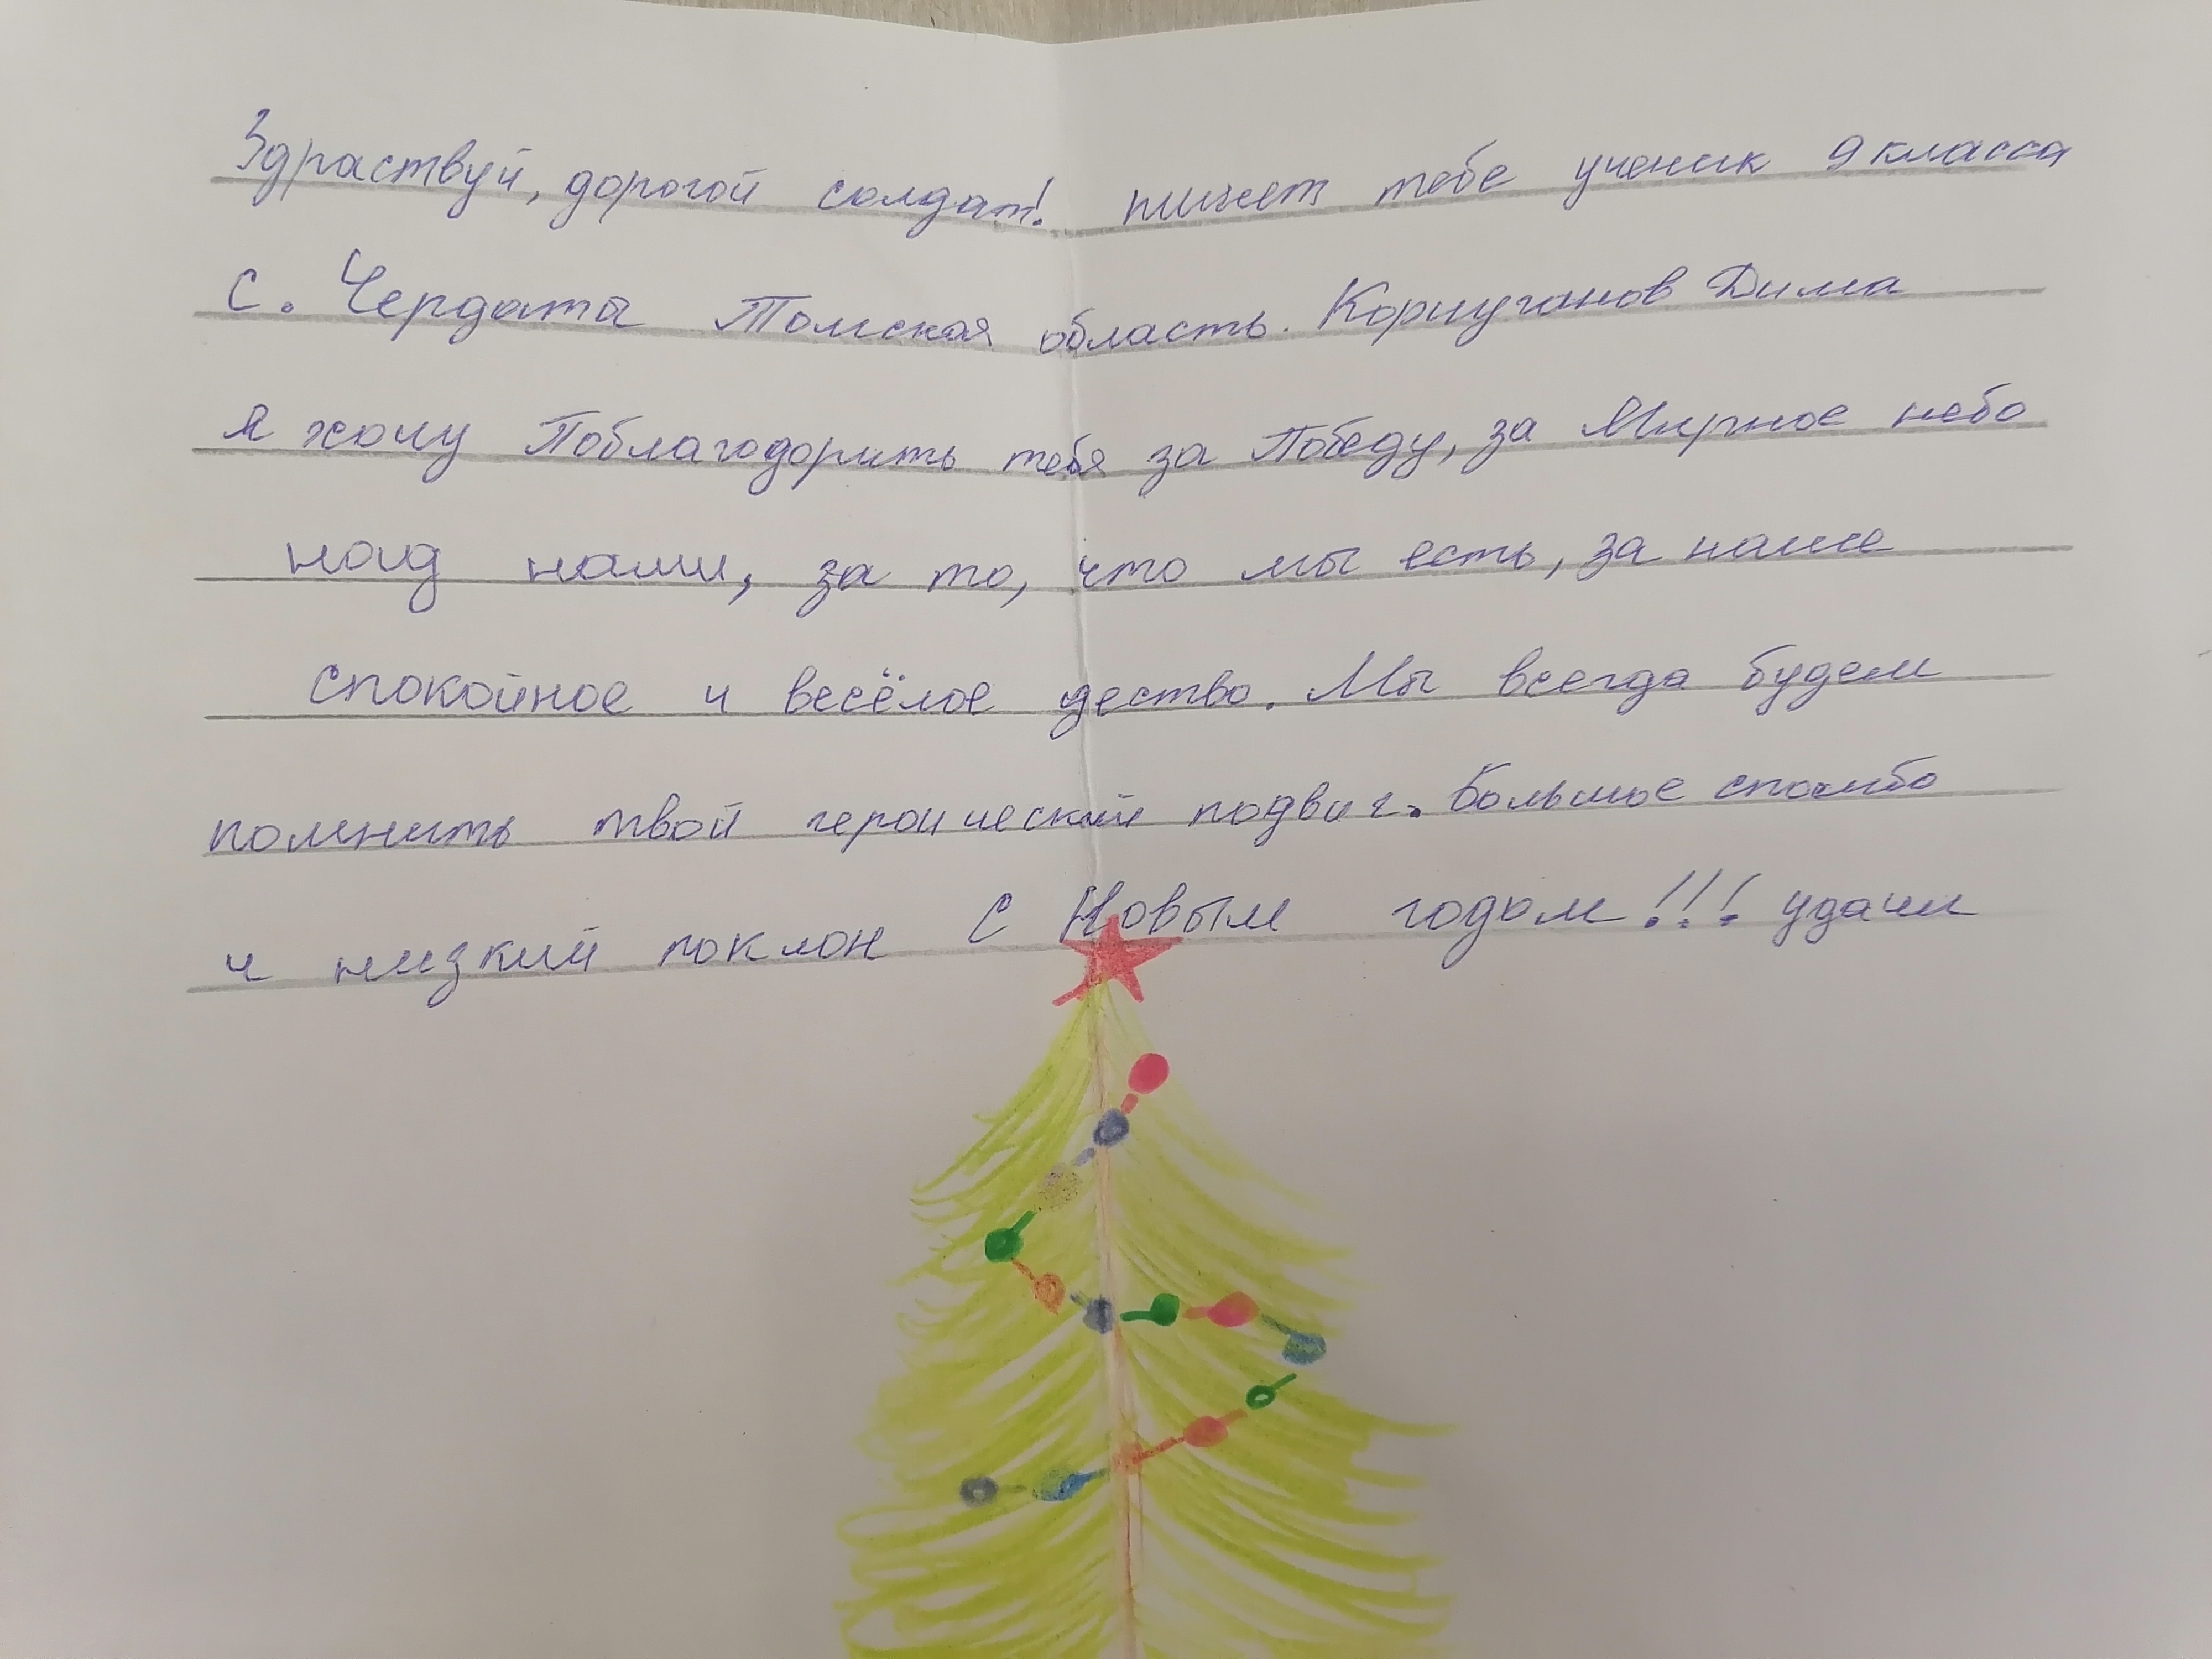 Здраствуй, дорогой солдат! пишет тебе ученик 9 класса
с. Чердаты Томская область. Кормуганов Дима
я хочу Поблагодорить тебя за Победу, за Мирное небо
над нами, за то, что мы есть, за наше
спокойное и весёлое дество. Мы всегда будем
помнить твой героический подвиг. Большое спасибо
и низкий поклон С Новым годом!!! удачи